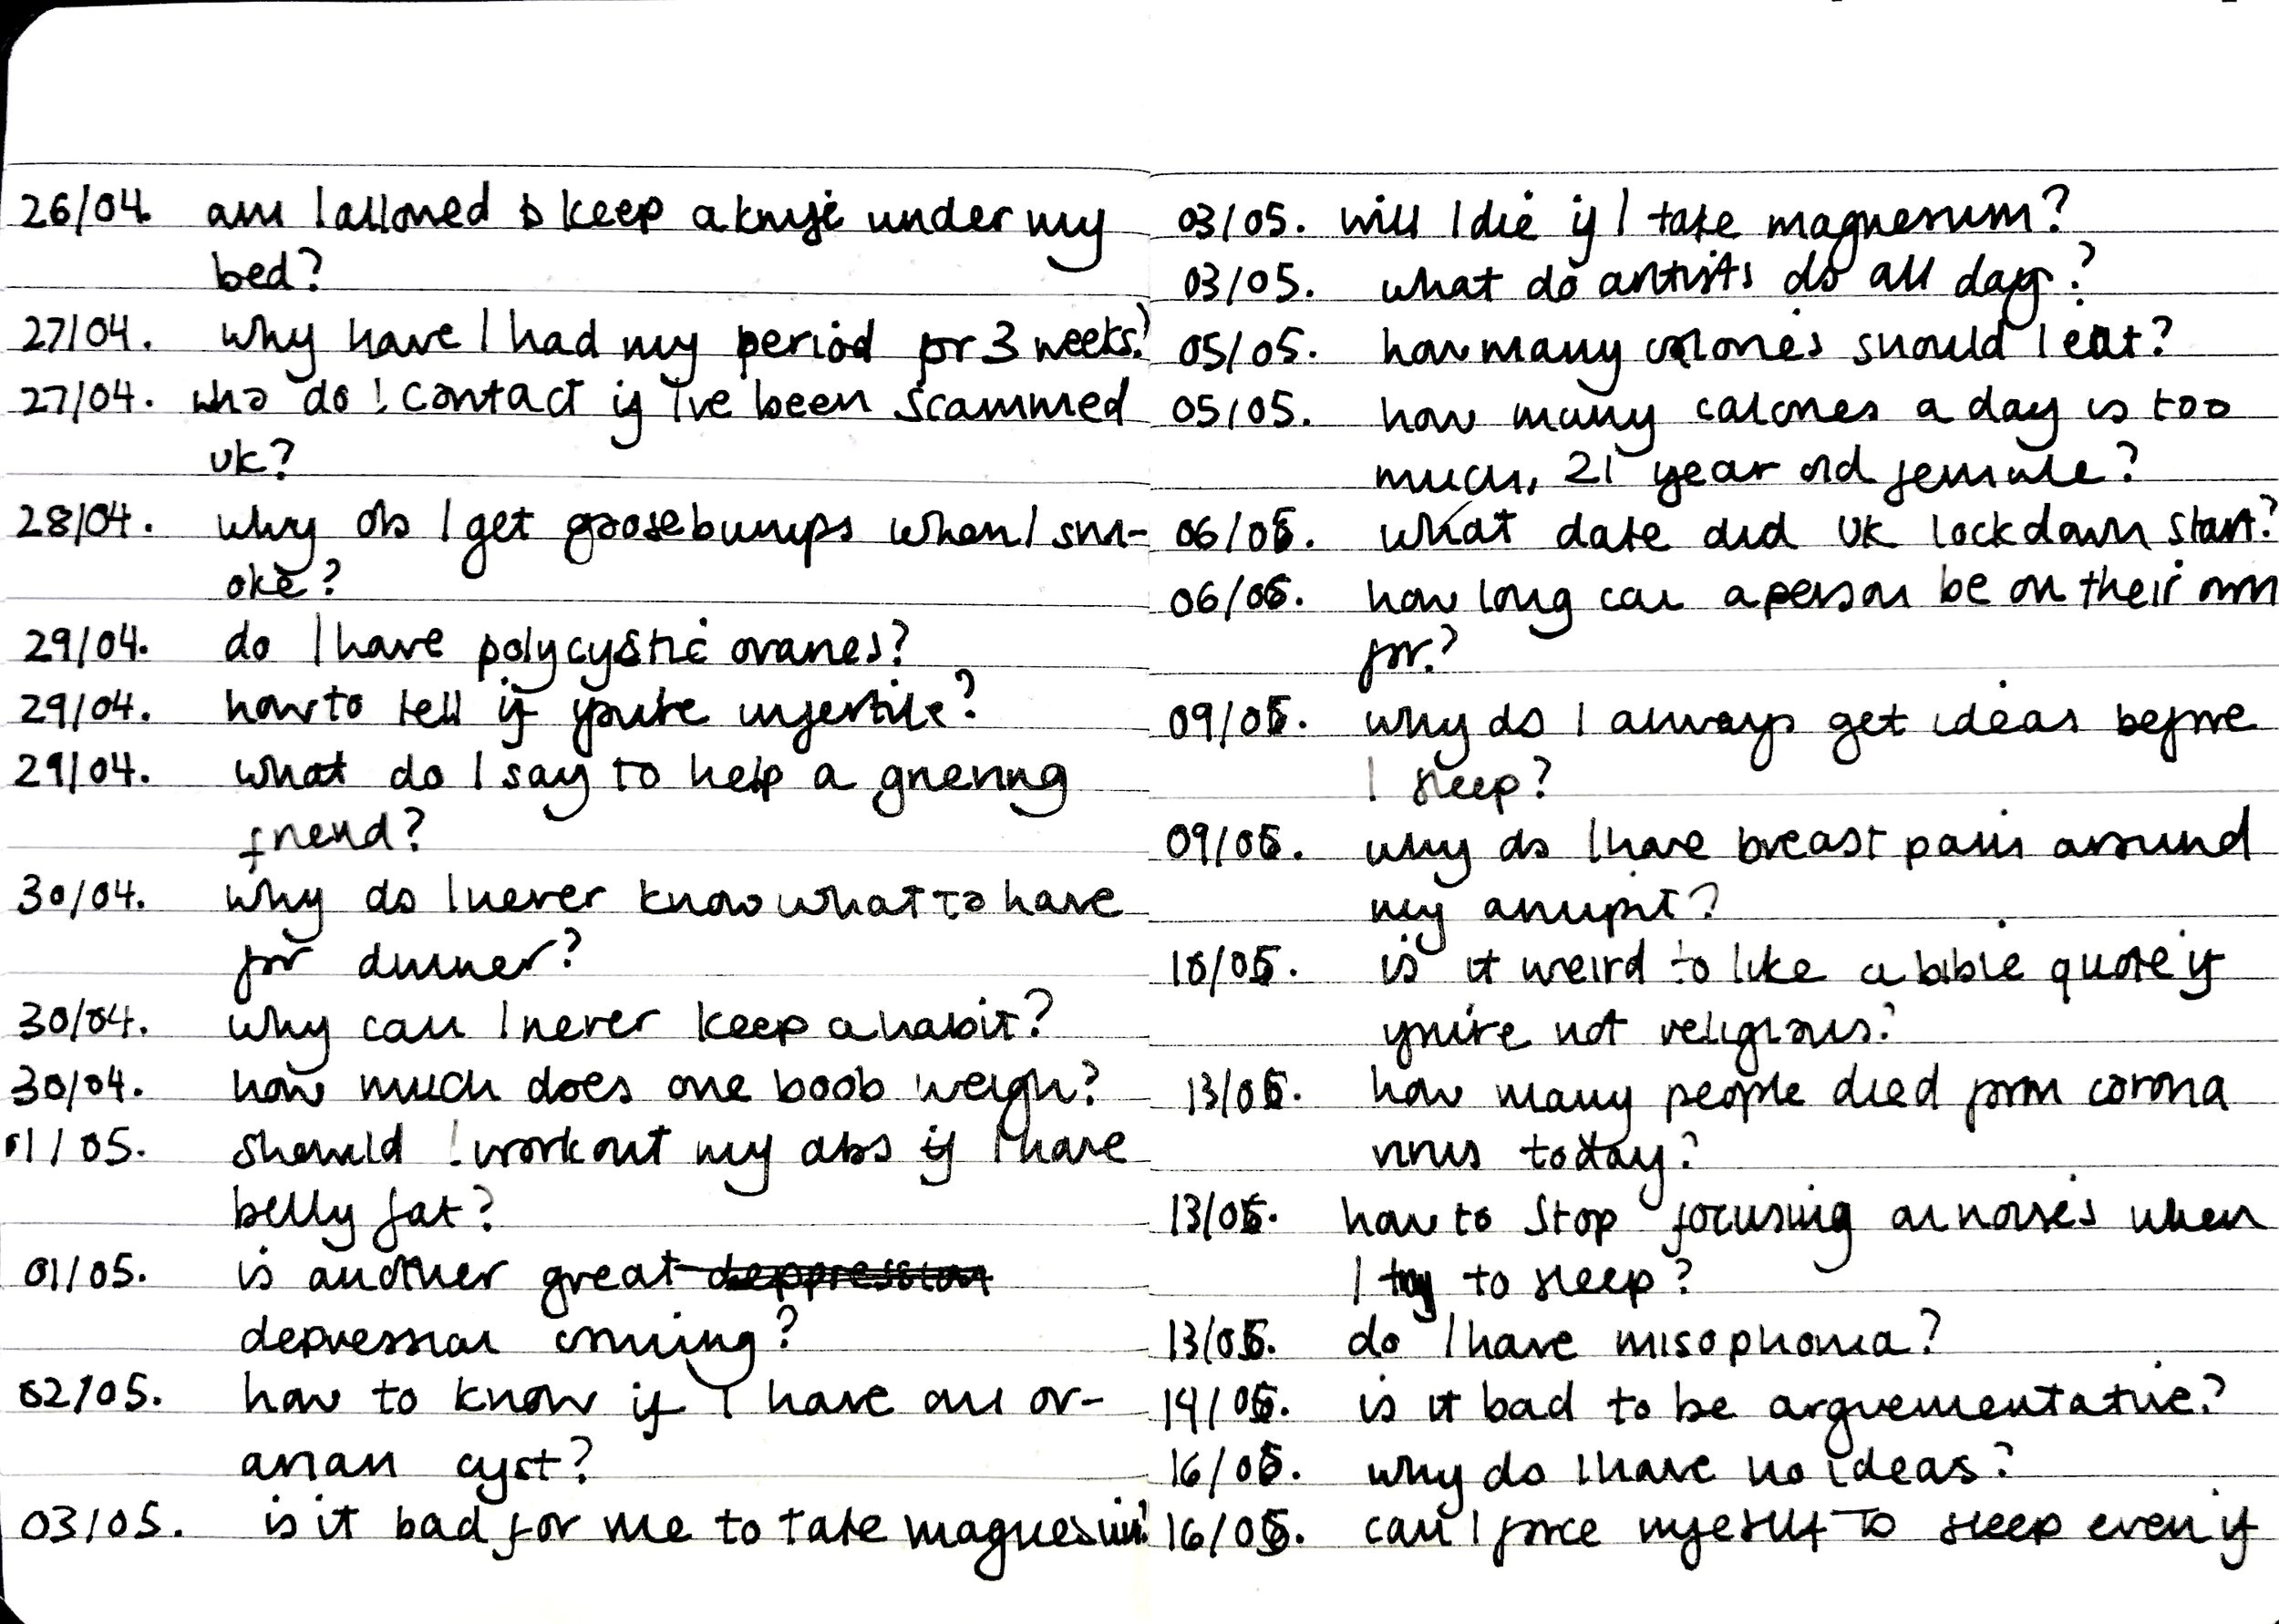 26/04. am I allowed to keep a knife under my
bed?
27/04. why have I had my period for 3 weeks?
27/04. who do I contact if I've been scammed
uk?
28/04. why do I get goosebumps when I sm-
oke?
29/04. do I have polycystic ovaries?
29/04. how to tell if you're infertile?
29/04. what do I say to help a grieving
friend?
30/04. why do I never know what to have
for dinner?
30/04. why can I never keep a habit?
30/04. how much does one boob weigh?
01/05. should I workout my abs if I have
belly fat?
01/05. is another great deppression
depression coming?
02/05. how to know if I have an ov-
arian cyst?
03/05. is it bad for me to take magnesium?
03/05. will I die if I take magnesium?
03/05. what do artists do all day?
05/05. how many calories should I eat?
05/05. how many calories a day is too
much, 21 year old female?
06/05. what date did UK lockdown start?
06/05. how long can a person be on their own
for?
09/05. why do I always get ideas before
I sleep?
09/05. why do I have breast pain around
my armpit?
10/05. is it weird to like a bible quote if
you're not religious?
13/05. how many people died from corona
virus today?
13/05. how to stop focusing on noises when
I try to sleep?
13/05. do I have misophonia?
14/05. is it bad to be arguementative?
16/05. why do I have no ideas?
16/05. can I force myself to sleep even if